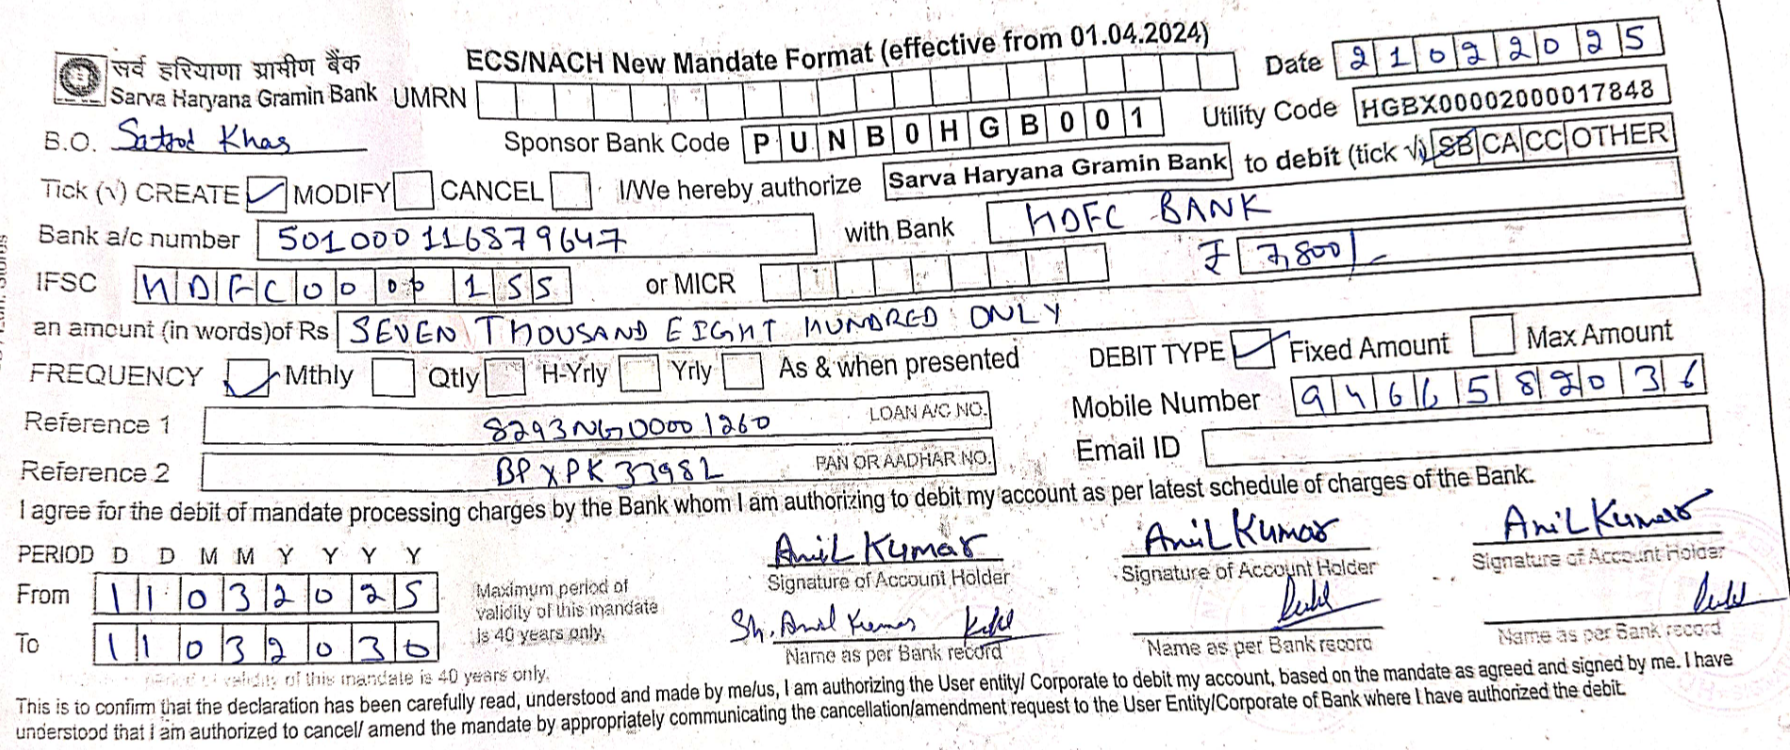 सर्व हरियाणा ग्रामीण बैंक
Sarva Haryana Gramin Bank
ECS/NACH New Mandate Format (effective from 01.04.2024)
Date 21022025
UMRN
B.O. Satrod Khas
Sponsor Bank Code PUNB0HGB001
Utility Code HGBX00002000017848
Tick (√) CREATE MODIFY CANCEL I/We hereby authorize Sarva Haryana Gramin Bank to debit (tick √) SB CA CC OTHER
Bank a/c number 501000116879647 with Bank HDFC BANK
IFSC HDFC0000155 or MICR ₹ 7,800/-
an amount (in words)of Rs SEVEN THOUSAND EIGHT HUNDRED ONLY
FREQUENCY Mthly Qtly H-Yrly Yrly As & when presented DEBIT TYPE Fixed Amount Max Amount
Reference 1 8293NG00001260 LOAN A/C NO. Mobile Number 9466582036
Reference 2 BPXPK3398L PAN OR AADHAR NO. Email ID
I agree for the debit of mandate processing charges by the Bank whom I am authorizing to debit my account as per latest schedule of charges of the Bank.
PERIOD D D M M Y Y Y Y
From 11032025
To 11032030
Maximum period of
validity of this mandate
is 40 years only.
Anil Kumar Anil Kumar Anil Kumar
Signature of Account Holder Signature of Account Holder Signature of Account Holder
Sh. Anil Kumar
Name as per Bank record Name as per Bank record Name as per Bank record
validity of this mandate is 40 years only.
This is to confirm that the declaration has been carefully read, understood and made by me/us, I am authorizing the User entity/ Corporate to debit my account, based on the mandate as agreed and signed by me. I have
understood that i am authorized to cancel/ amend the mandate by appropriately communicating the cancellation/amendment request to the User Entity/Corporate of Bank where I have authorized the debit.